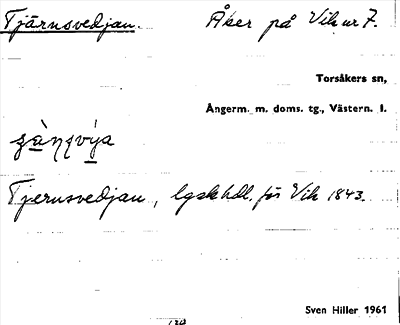 Tjärnsvedjan. Åker på Vik nr 7.
Torsåkers sn,
Ångerm. m. doms. tg., Västern. l.
Tjernsvedjan, lgskhdl. för Vik 1843.
Sven Hiller 1961
120